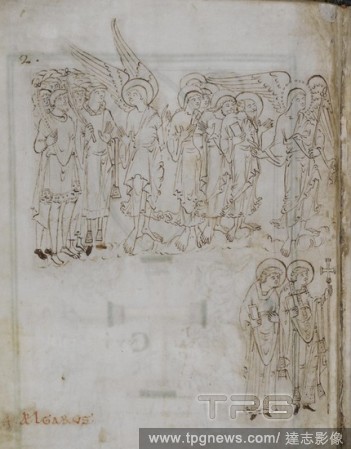 ÆLGARUS
TPG
www.tpgnews.com/ 達志影像